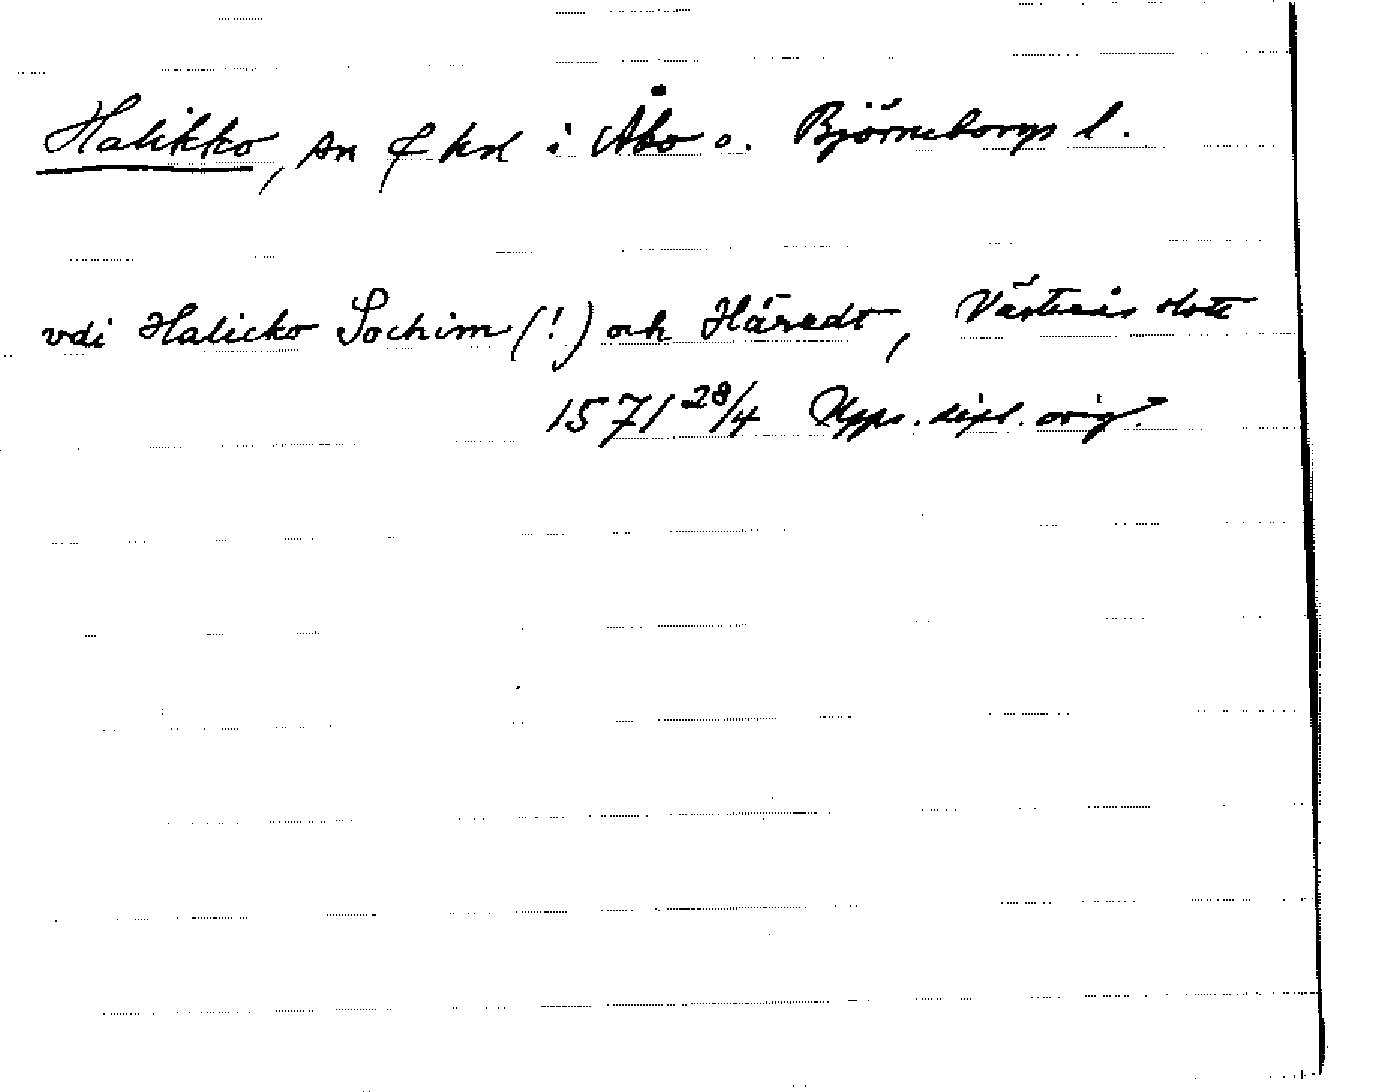 Halikko, sn o hd i Åbo o. Björneborgs l.
vdi Halicko Sochim (!) och Häredt, Västerås slott
1571 28/4 Upps. dipl. orig.